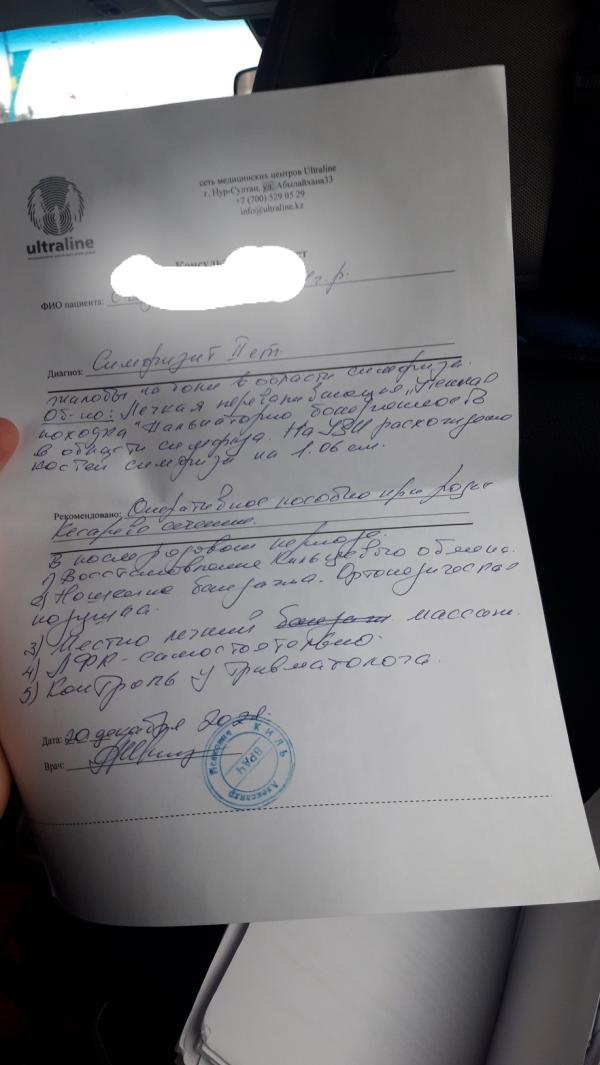 сеть медицинских центров Ultraline
г. Нур-Султан, ул. Абылайхана33
+7 (700) 529 05 29
info@ultraline.kz
ultraline
ФИО пациента: г.р.
Диагноз: Симфизит II ст.
жалобы на боли в области симфиза.
Об-но: Легкая переваливающая "
походка" Пальпаторно болезненность
в области симфиза. На УЗИ расхождение
костей симфиза на 1.06 см.
Рекомендовано: Оперативное пособие при родах
Кесарево сечение.
В послеродовом периоде.
1) Восстановление Кальциевого обмена.
2) Ношение бандажа. Ортопедическая
подушка.
3) Местно легкий массаж.
4) ЛФК - самостоятельно.
5) Контроль у травматолога.
Дата: 20 декабря
Врач:
КИЛЬ
ВРАЧ
Александр